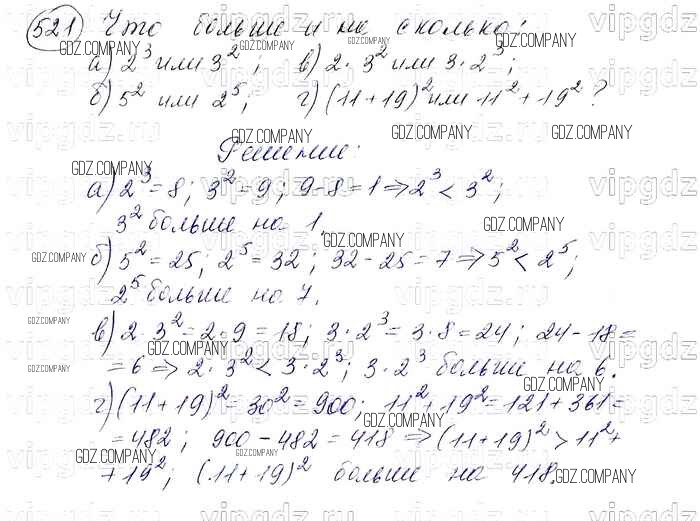 521 Что больше и на сколько:
а) 2³ или 3²; в) 2·3² или 3·2³;
б) 5² или 2⁵; г) (11+19)² или 11²+19²?
Решение:
а) 2³=8; 3²=9; 9-8=1⇒2³<3²;
3² больше на 1.
б) 5²=25; 2⁵=32; 32-25=7⇒5²<2⁵;
2⁵ больше на 7.
в) 2·3²=2·9=18; 3·2³=3·8=24; 24-18=
=6⇒2·3²<3·2³; 3·2³ больше на 6.
г) (11+19)²=30²=900; 11²+19²=121+361=
=482; 900-482=418⇒(11+19)²>11²+
+19²; (11+19)² больше на 418.